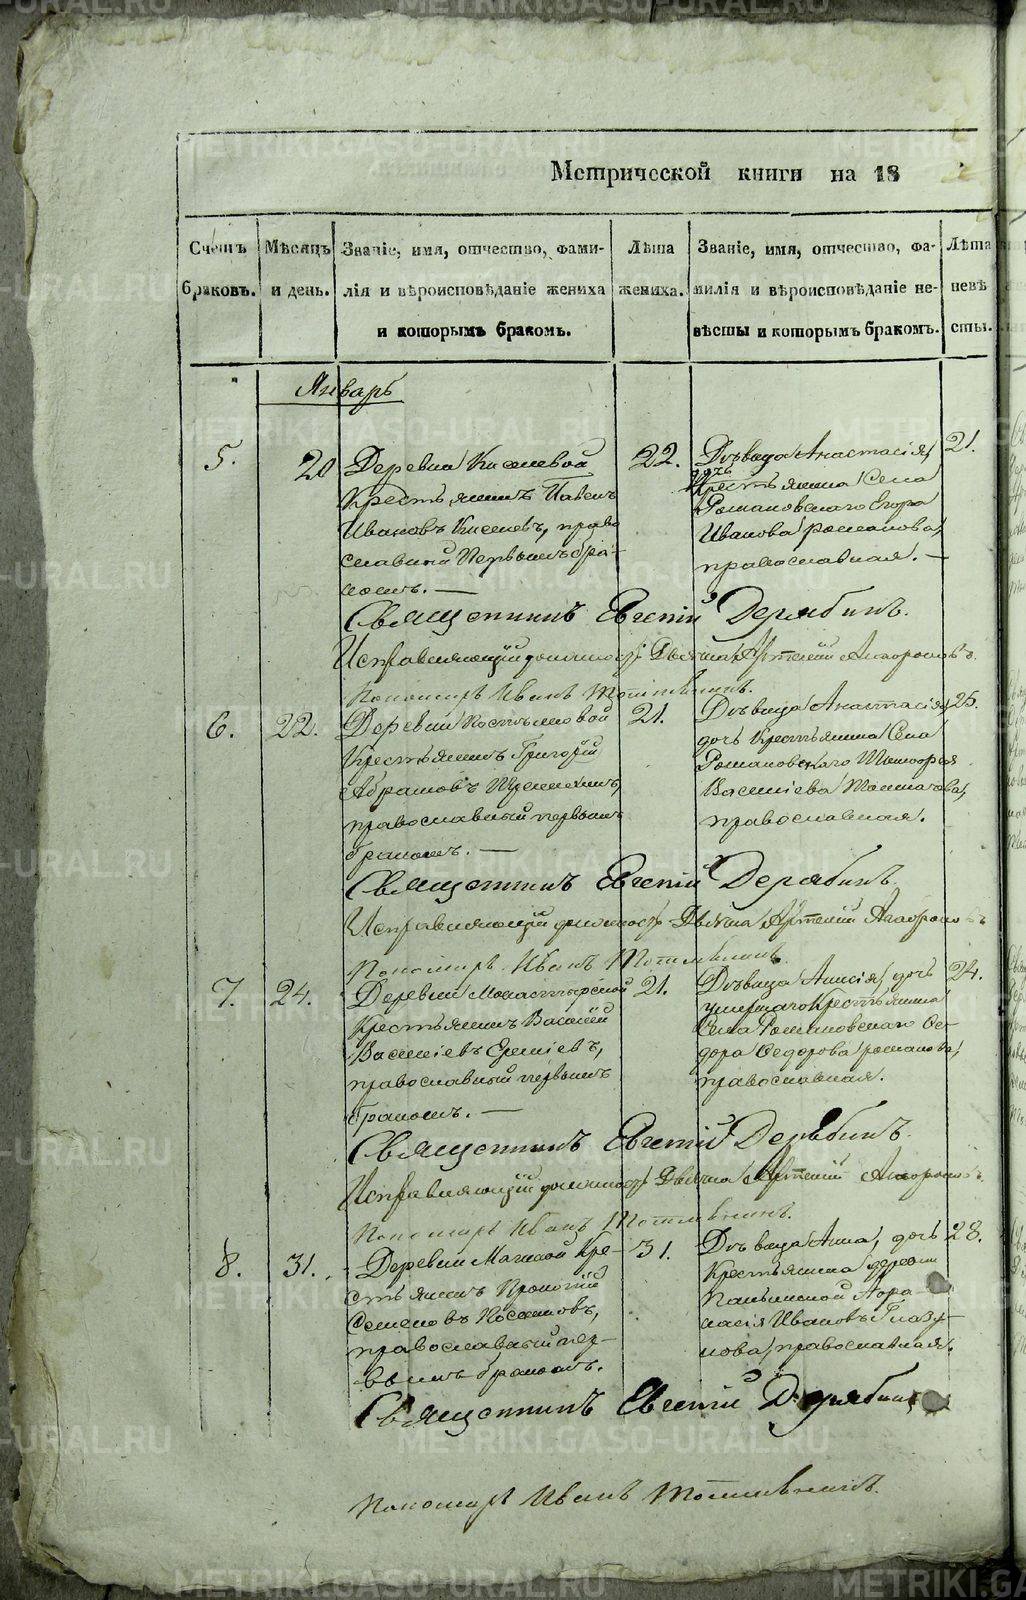 Метрической книги на 18
Счетъ браковъ.
Мѣсяцъ и день.
Званіе, имя, отчество, фамилія и вѣроисповѣданіе жениха и которымъ бракомъ.
Лѣта жениха.
Званіе, имя, отчество, фамилія и вѣроисповѣданіе невѣсты и которымъ бракомъ.
Лѣта невѣсты.
Январь
5.
20
Деревни Киселевой
Крестьянинъ Павелъ
Ивановъ Киселевъ, право
славный первымъ бра-
комъ. —
22.
Дѣвица Анастасія,
дочь
Крестьянина Села
Романовскаго Егора
Иванова Романова,
православная. —
21.
Священникъ Евгеній Дерябинъ.
Исправляющій должность Дьячка Артемій
Пономарь Иванъ
6.
22.
Деревни
Крестьянинъ Григорій
Абрамовъ
православный первымъ
бракомъ. —
21.
Дѣвица Анастасія,
дочь Крестьянина Села
Романовскаго
Васильева
православная.
25.
Священникъ Евгеній Дерябинъ.
Исправляющій должность Дьячка Артемій
Пономарь Иванъ
7.
24.
Деревни Монастырской
Крестьянинъ Василій
Васильевъ
православный первымъ
бракомъ. —
21.
Дѣвица Анисія, дочь
умершаго Крестьянина
Села Романовскаго Ѳе-
дора Ѳедорова Романова,
православная.
24.
Священникъ Евгеній Дерябинъ.
Исправляющій должность Дьячка Артемій
Пономарь Иванъ
8.
31.
Деревни Кре-
стьянинъ
Семеновъ
православный пер-
вымъ бракомъ.
31.
Дѣвица Анна, дочь
Крестьянина деревни
Аѳа-
насія Иванова Глазу-
нова, православная.
28.
Священникъ Евгеній Дерябинъ
Пономарь Иванъ
METRIKI.GASO-URAL.RU